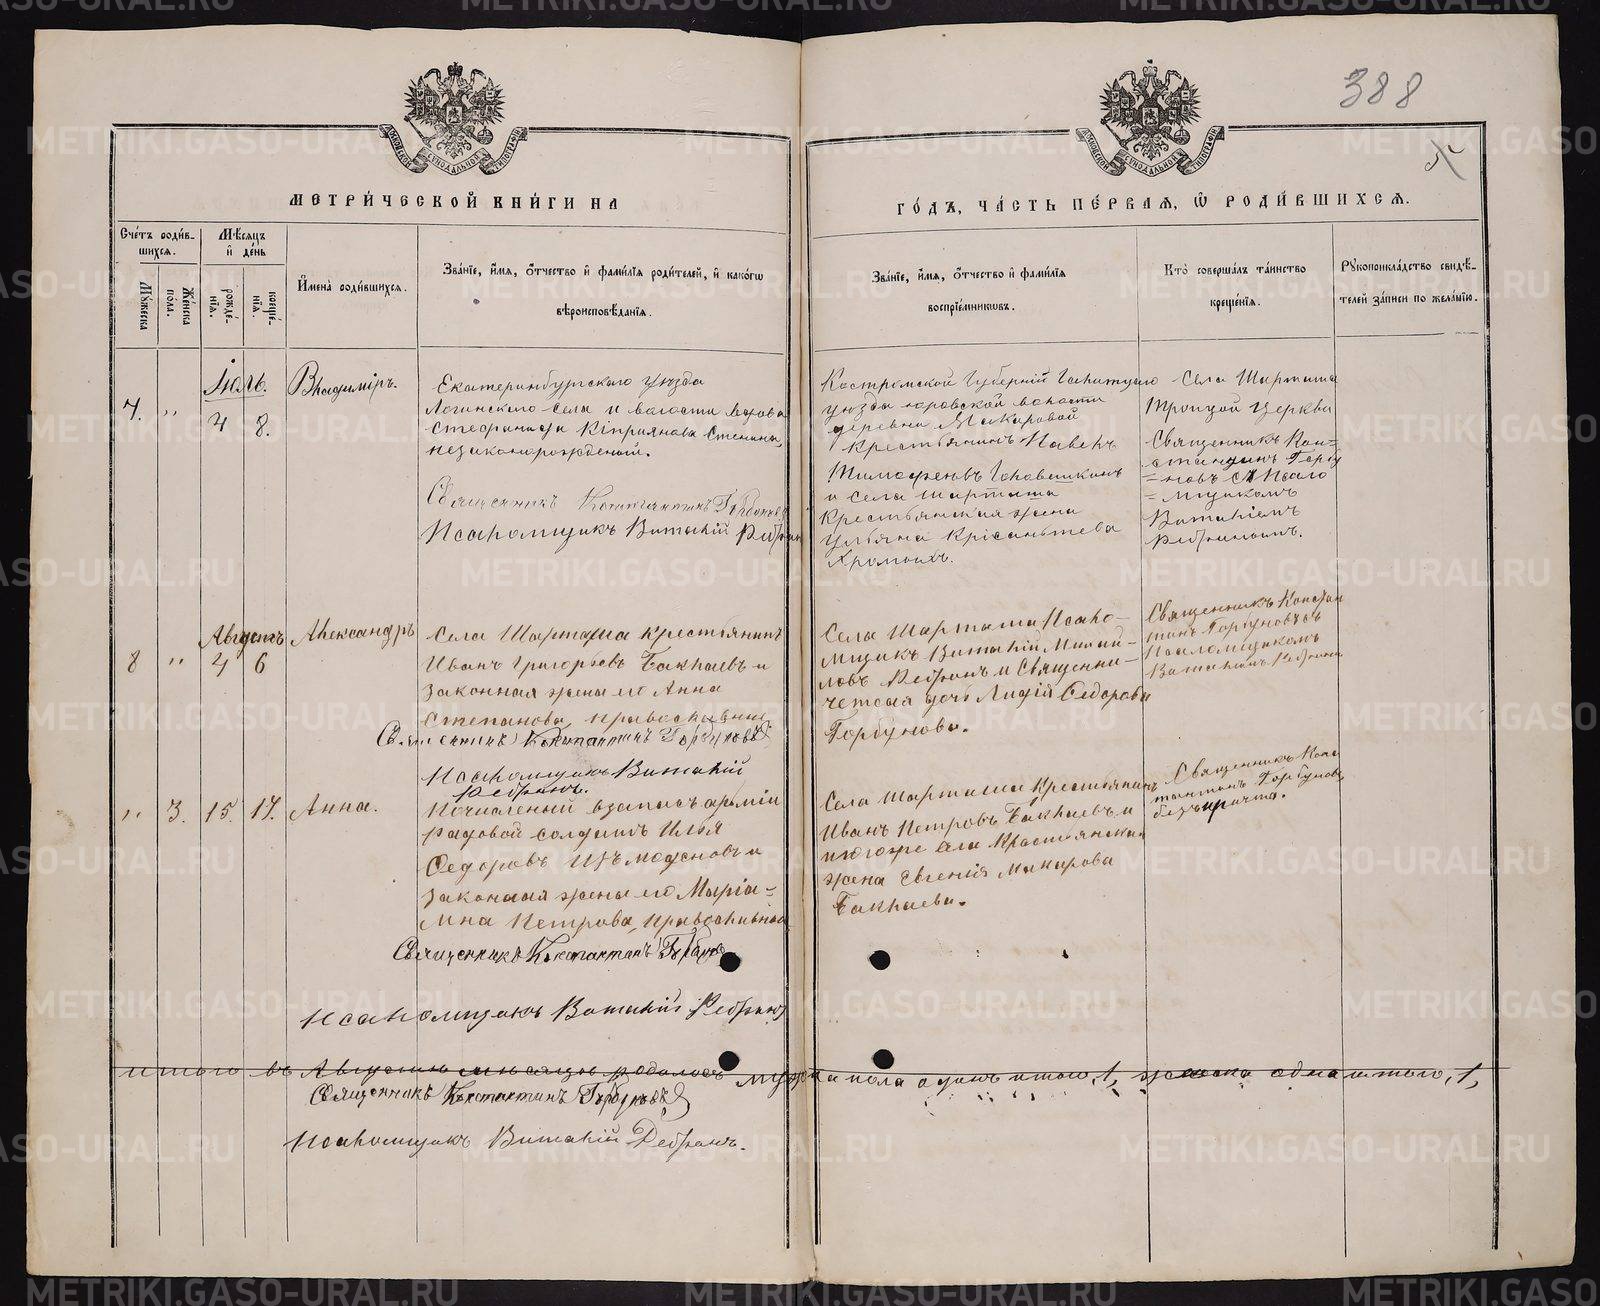 388
5
МОСКОВСКОЙ СѴНОДАЛЬНОЙ ТИПОГРАФІИ
МОСКОВСКОЙ СѴНОДАЛЬНОЙ ТИПОГРАФІИ
МЕТРИ́ЧЕСКОЙ КНИ́ГИ НА
ГО́ДЪ, ЧА́СТЬ ПЕ́РВАЯ, Ѡ РОДИ́ВШИХСЯ.
Сче́тъ роди́в-
шихся.
Мѣ́сяцъ
и҆ де́нь
Му́жеска
Же́нска
по́ла.
рожде́-
нїя.
креще́-
нїя.
И҆мена̀ роди́вшихся.
Зва́нїе, и҆́мя, ѻ҆́тчество и҆ фами́лїя роди́телей, и҆ како́гѡ
вѣроисповѣ́данїя.
Зва́нїе, и҆́мя, ѻ҆́тчество и҆ фами́лїя
воспрїе́мниковъ.
Кто̀ соверша́лъ та́инство
креще́нїя.
Рꙋкоприкла́дство свидѣ́-
телей за́писи по жела́нїю.
Іюль.
7. " 4 8.
Владиміръ.
Екатеринбургскаго уѣзда
Логиновского села и волости вдова
Стефанида Кипріянова Стенина,
незаконорожденый.
Священникъ Константинъ Горбуновъ
Псаломщикъ Виталій Ребринъ
Костромской Губерніи
уѣзда юровской волости
деревни Макаровой
крестьянинъ Павелъ
Тимофеевъ
и села Шарташа
Крестьянская жена
Ульяна Крисаньтева
Хромыхъ.
Села Шарташа
Троицой Церкви
Священникъ Кон=
стантинъ Горбу
=новъ съ Псало
=мщикомъ
Виталіемъ
Ребринымъ.
Августъ
8 " 4 6
Александръ
Села Шарташа крестьянинъ
Иванъ Григорьевъ Бакпаевъ и
законная жена его Анна
Степанова, православныи
Священникъ Константинъ Горбуновъ
Псаломщикъ Виталій
Ребринъ.
Села Шарташа Псало-
мщикъ Виталій Михай-
ловъ Ребринъ и Священни-
ческая дочь Лидія Федорова
Горбунова.
Священникъ Констан
тинъ Горбуновъ съ
Псаломщикомъ
Виталіемъ Ребринымъ
" 3. 15. 17.
Анна.
Почисленый взапасъ арміи
рядовой солдатъ Илья
Федоровъ Изъмоденовъ и
законная жена его Марiа-
мна Петрова, православныя
Священникъ Константинъ Горбуновъ
Псаломщикъ Виталій Ребринъ
Села Шарташа Крестьянинъ
Иванъ Петровъ Бакпаевъ и
тогоже села Крестьянская
жена Евгенія Макарова
Бакпаева.
Священникъ Конс
тантинъ Горбуновъ
безъ причта.
итого въ Августе месяце родилось мужска пола одинъ итого, 1, женска одна итого, 1,
Священникъ Константинъ Горбуновъ
Псаломщикъ Виталій Ребринъ.
METRIKI.GASO-URAL.RU